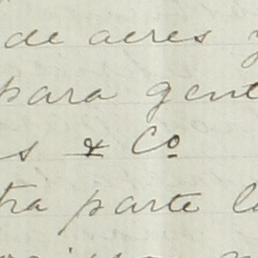 de aeres y
para gent
s & Co
tra parte l